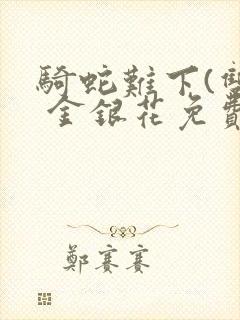 騎蛇難下(雙
金銀花免費
鄭賽賽